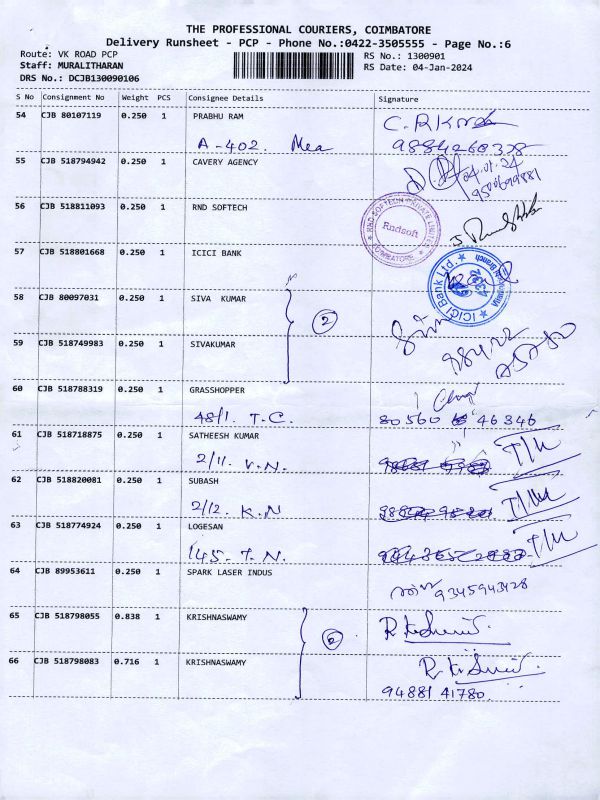 THE PROFESSIONAL COURIERS, COIMBATORE
Delivery Runsheet - PCP - Phone No.:0422-3505555 - Page No.:6
Route: VK ROAD PCP
RS No.: 1300901
Staff: MURALITHARAN
RS Date: 04-Jan-2024
DRS No.: DCJB130090106
S No Consignment No Weight PCS Consignee Details Signature
54 CJB 80107119 0.250 1 PRABHU RAM
A-402.
55 CJB 518794942 0.250 1 CAVERY AGENCY
04.01.24
56 CJB 518811093 0.250 1 RND SOFTECH
RND SOFTECH PRIVATE LIMITED
Rndsoft
COIMBATORE
57 CJB 518801668 0.250 1 ICICI BANK
ICICI Bank Ltd.
58 CJB 80097031 0.250 1 SIVA KUMAR
2
59 CJB 518749983 0.250 1 SIVAKUMAR
60 CJB 518788319 0.250 1 GRASSHOPPER
48/1. T.C. 80560 46346
61 CJB 518718875 0.250 1 SATHEESH KUMAR
2/11. V.N.
62 CJB 518820081 0.250 1 SUBASH
2/12. K.N
63 CJB 518774924 0.250 1 LOGESAN
145. T.N.
64 CJB 89953611 0.250 1 SPARK LASER INDUS
9345943428
65 CJB 518798055 0.838 1 KRISHNASWAMY
2
66 CJB 518798083 0.716 1 KRISHNASWAMY
94881 41780.